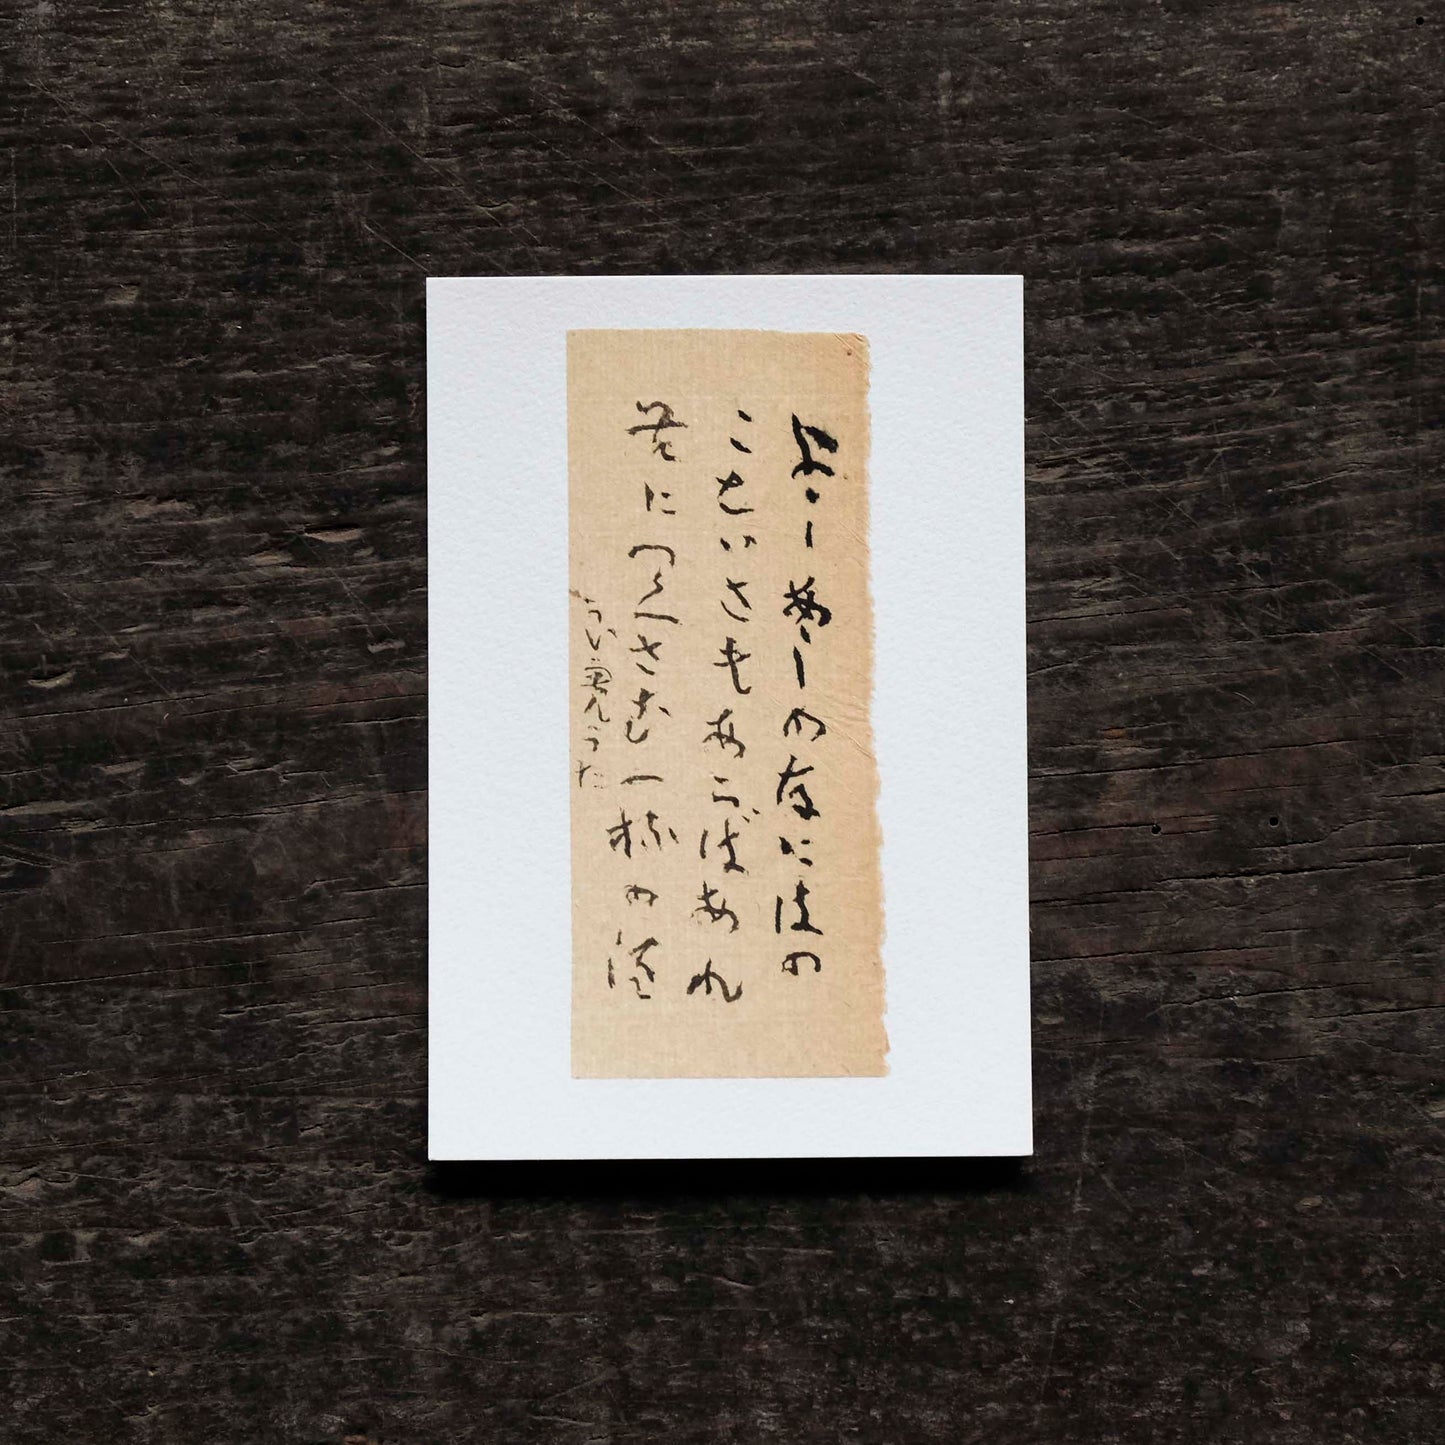 よしあしのなにはの
ことはさもあらばあれ
共につくさむ一杯の酒